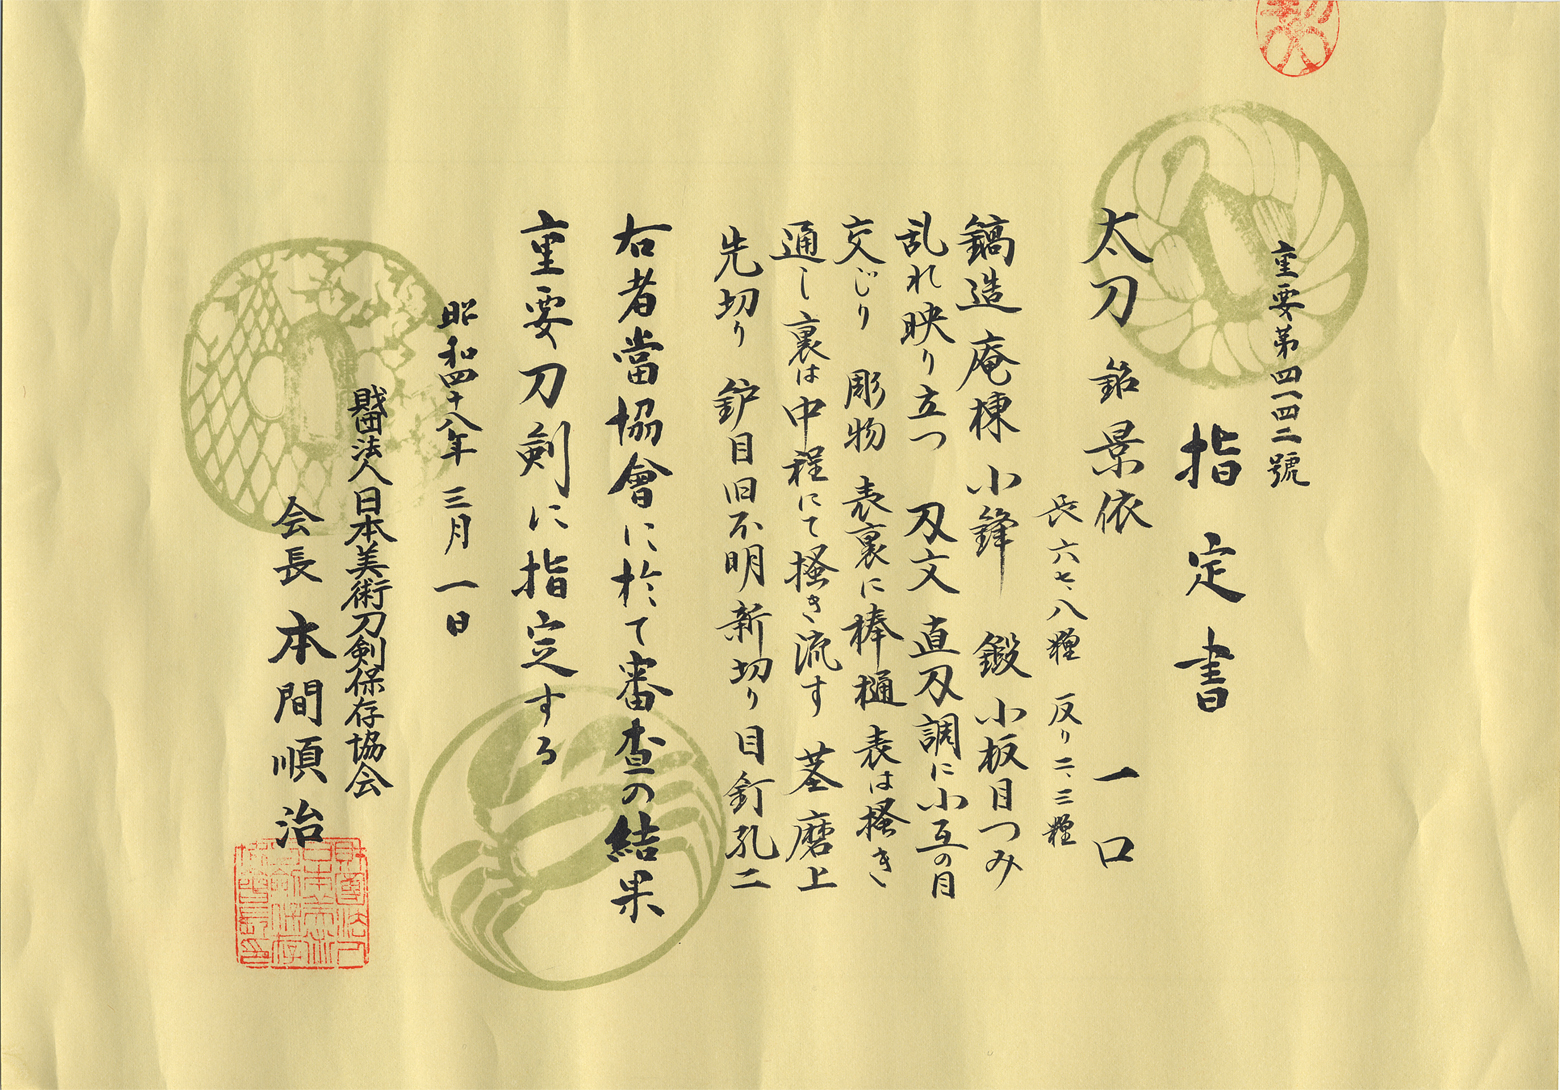 重要第四一四二號
指定書
太刀 銘 景依 一口
長 六七、八糎 反り 二、三糎
鎬造 庵棟 小鋒 鍛 小板目つみ
乱れ映り立つ 刃文 直刃調に小互の目
交じり 彫物 表裏に棒樋 表は掻き
通し裏は中程にて掻き流す 茎 磨上
先切り 鈩目旧不明新切り 目釘孔二
右者當協會に於て審査の結果
重要刀剣に指定する
昭和四十八年 三月 一日
財団法人日本美術刀剣保存協会
会長 本間順治